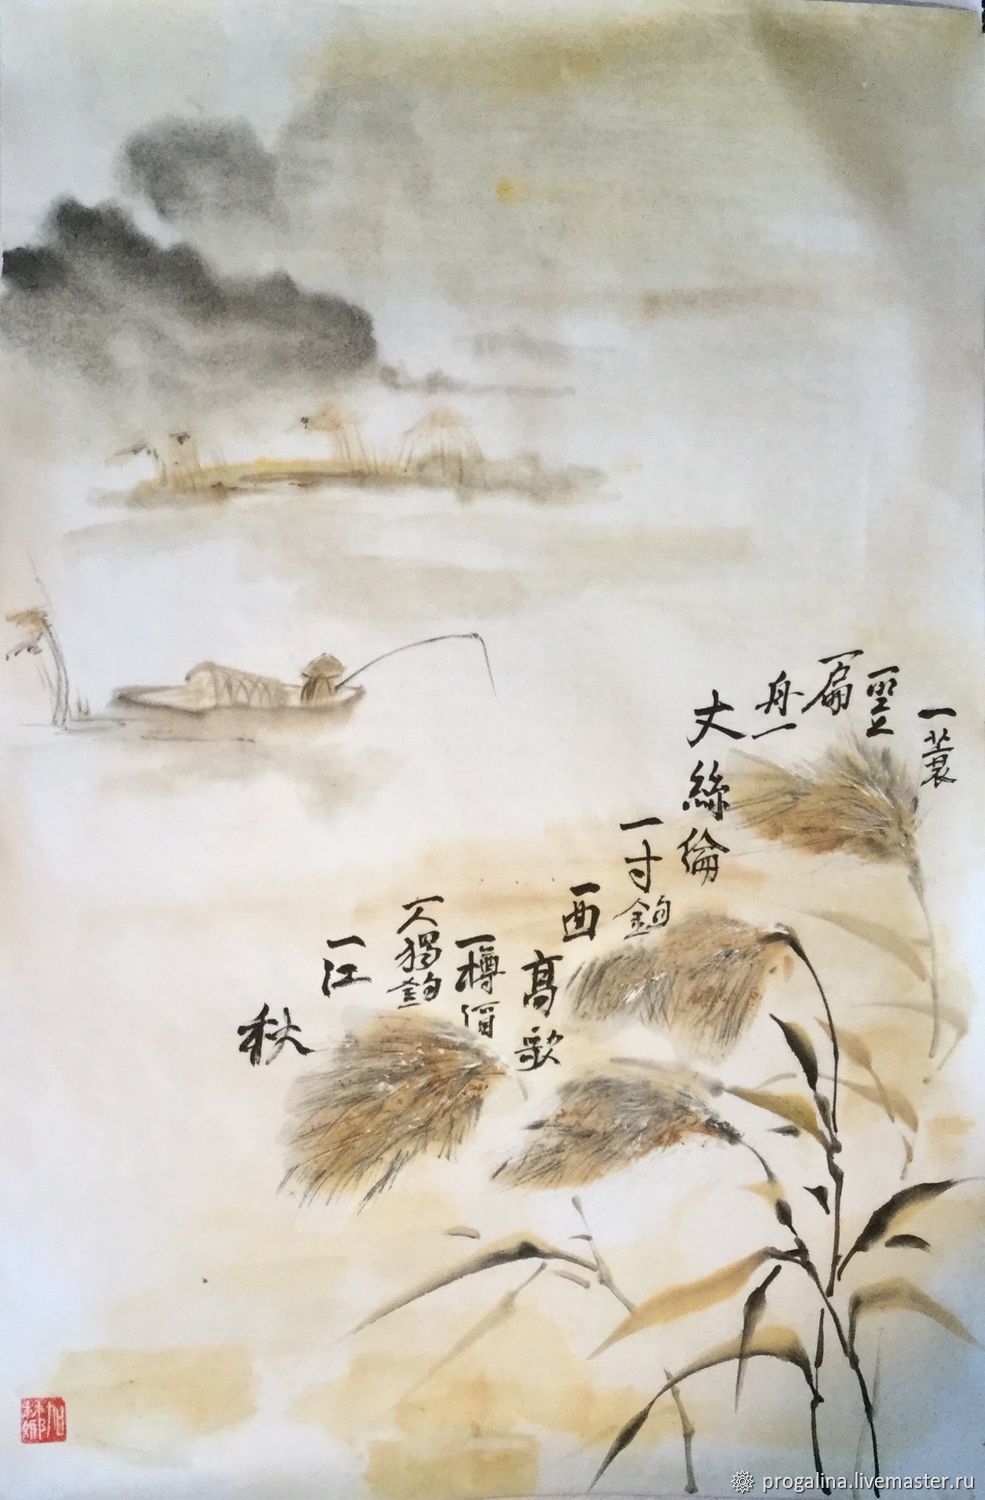 一蓑
一
一扁
舟一
丈絲綸
一寸鉤
一
高歌
一樽酒
一人獨釣
一江
秋
progalina.livemaster.ru